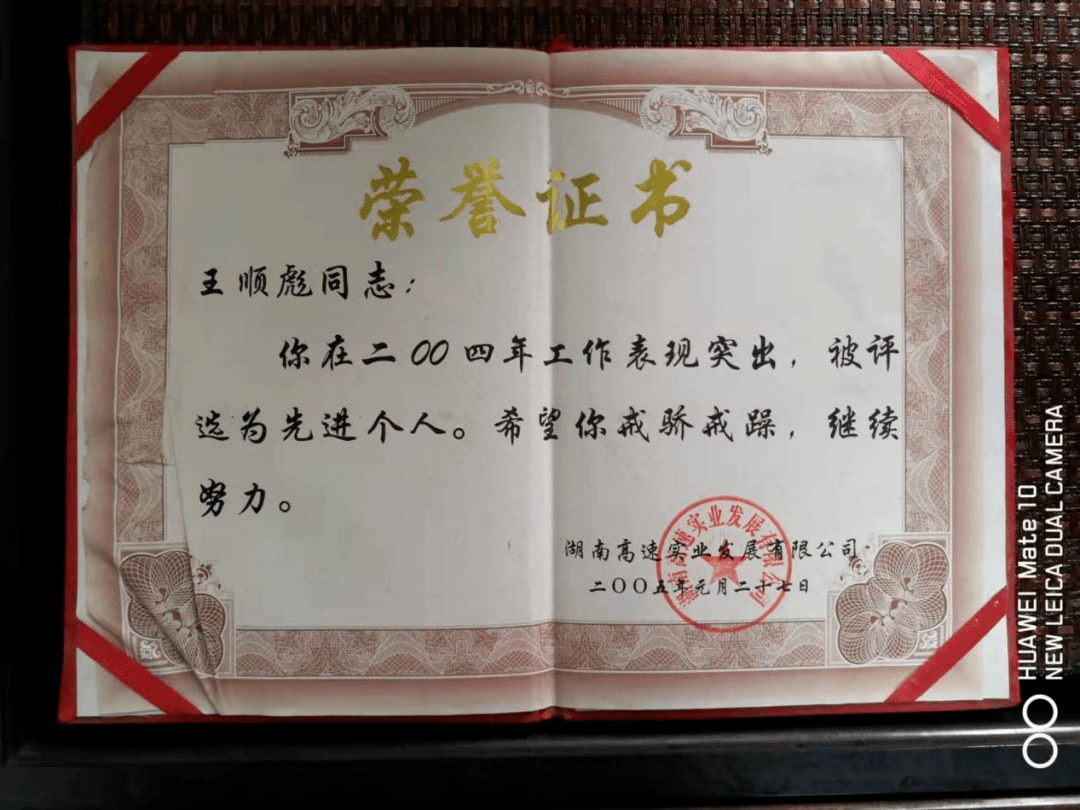 荣誉证书
王顺彪同志：
你在二00四年工作表现突出，被评
选为先进个人。希望你戒骄戒躁，继续
努力。
湖南高速实业发展有限公司
二〇〇五年元月二十七日
湖南高速实业发展有限公司
HUAWEI Mate 10
NEW LEICA DUAL CAMERA